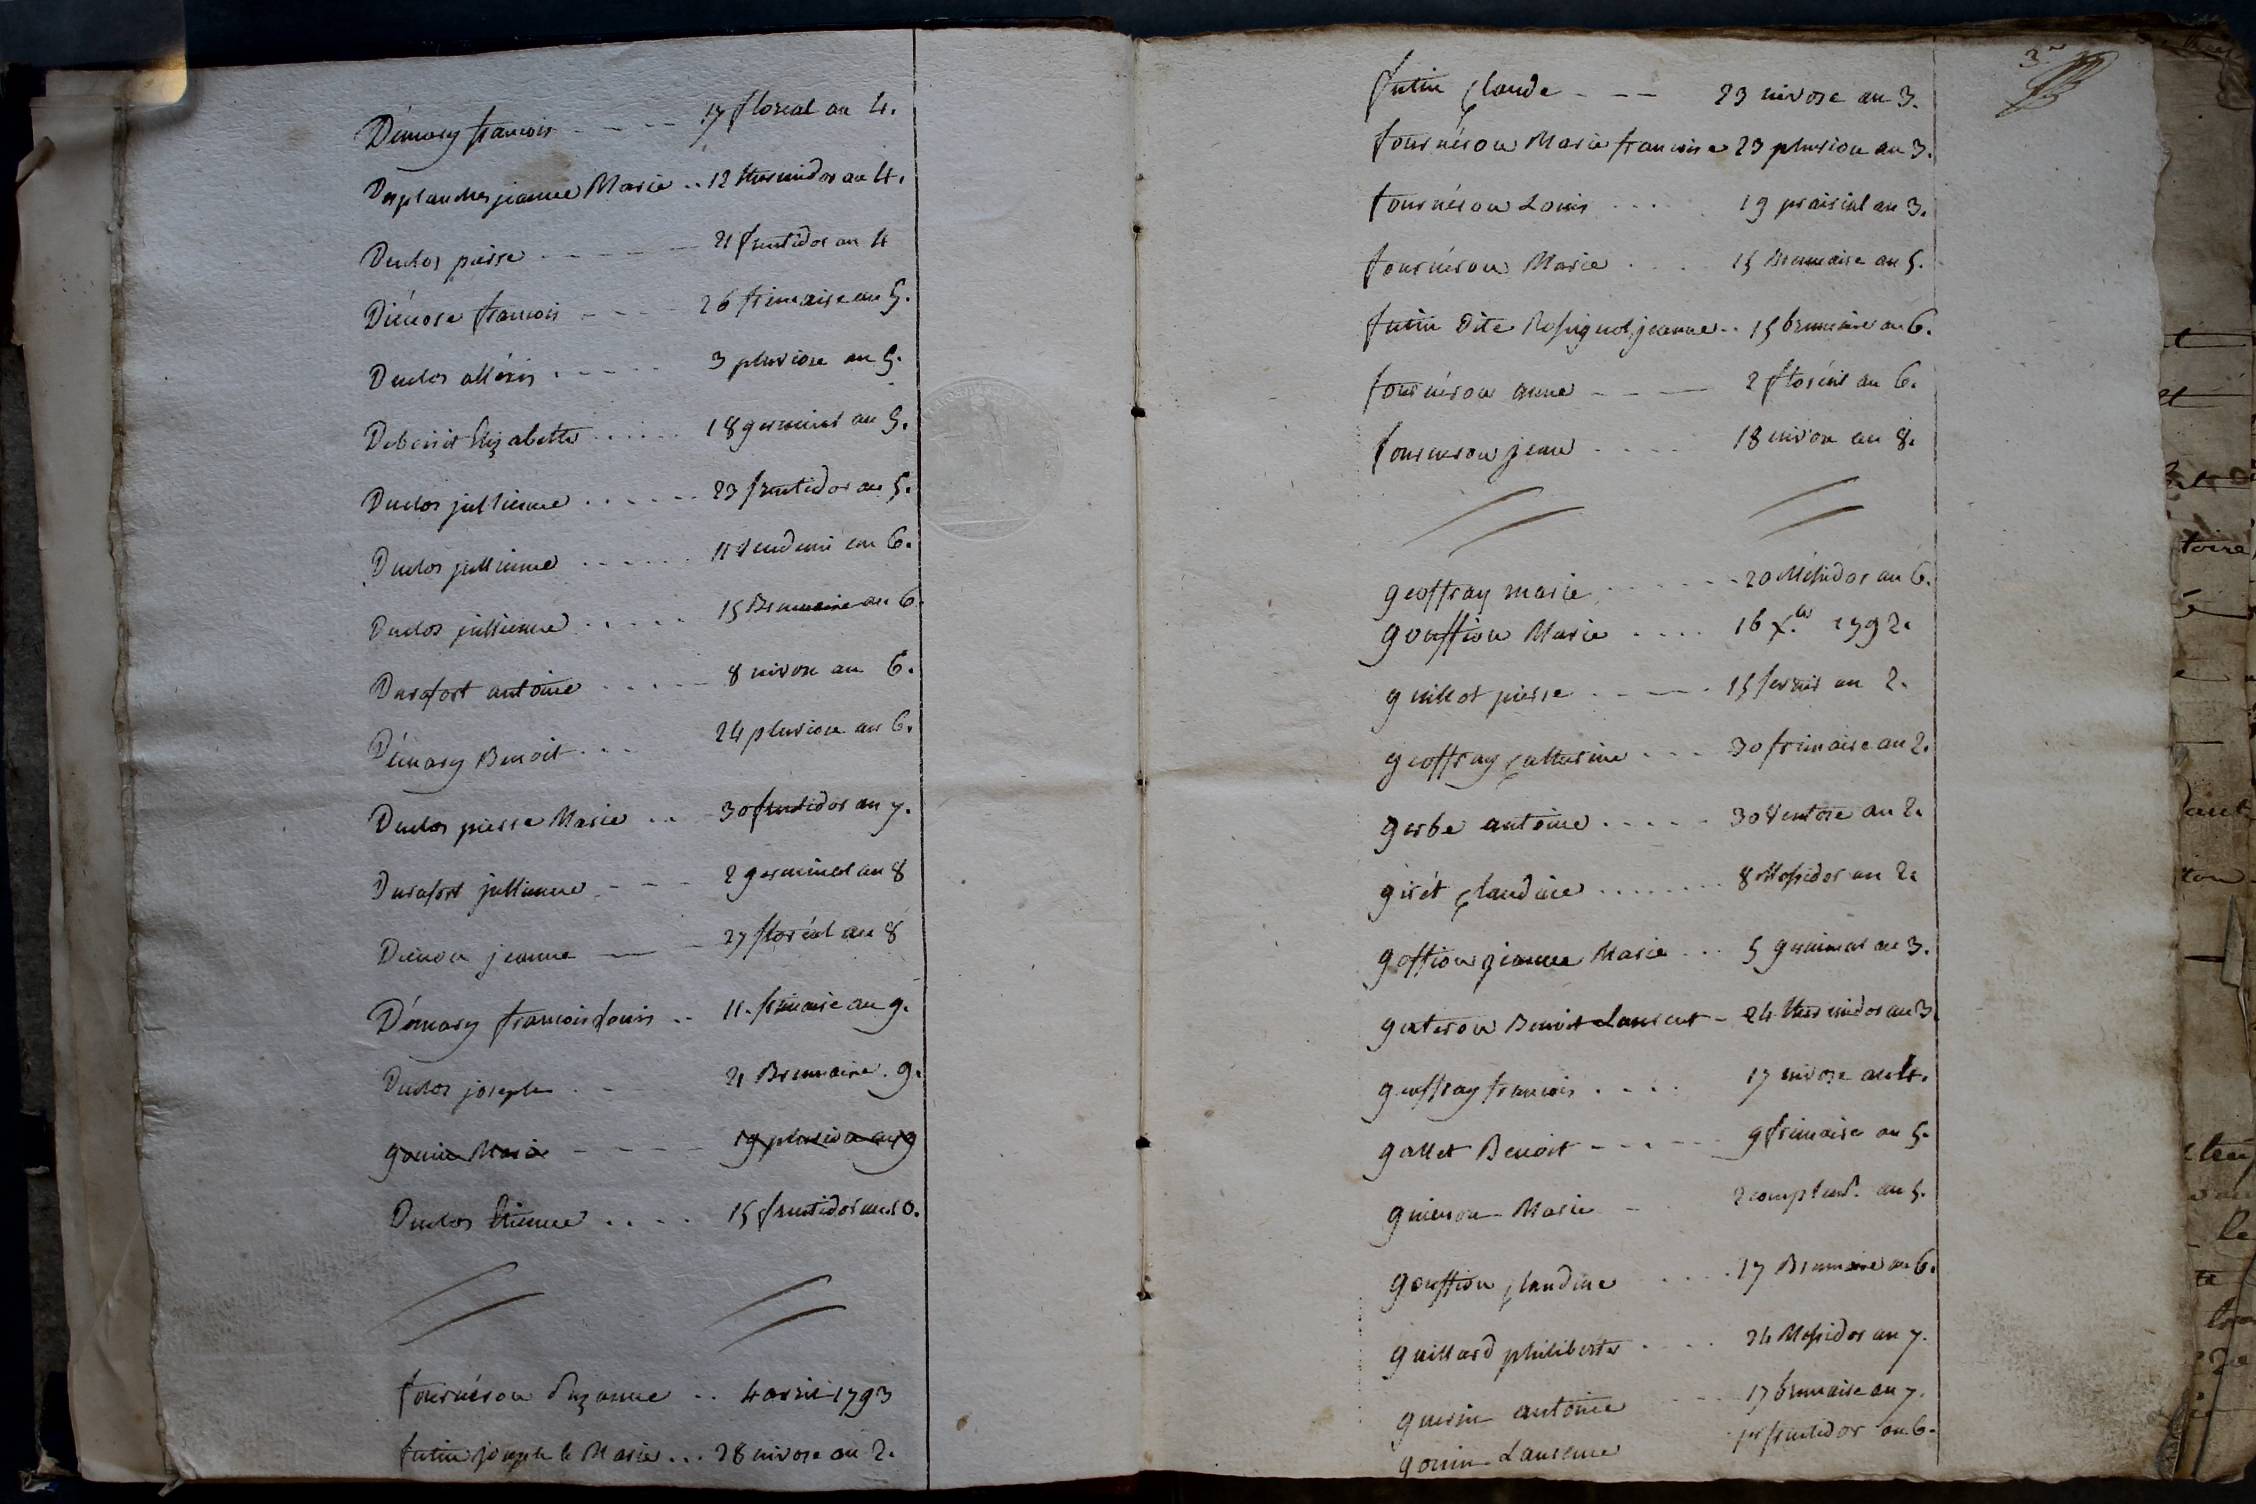 Démary francois - - - - 17 floreal an 4.
Desplanches jeanne Marie .. 12 thermidor an 4.
Duclos pierre - - - - 21 fructidor an 4
francois - - - - 26 frimaire an 5.
Duclos alléxis . - - - 3 pluviose an 5.
Elizabeth ...... 18 germinal an 5.
Duclos jullienne ...... 23 fructidor an 5.
Duclos jullienne ...... 11 vendemi an 6.
Duclos jullienne ..... 15 Brumaire an 6.
Durafort antoine ..... 8 nivose an 6.
Démary Benoit ... 24 pluviose an 6.
Duclos pierre Marie ... 30 fructidor an 7.
Durafort jullienne - - - 2 germinal an 8
jeanne — - 27 floréal an 8
Démary francois Louis .. 11. frimaire an 9.
Duclos joseph . - 21 Brumaire . 9.
gouin Marie - - - - 19 pluviose an 9
Duclos Etienne .... 15 fructidor an 10.
fournérou Suzanne .. 4 avril 1793
futin joseph le Marie ... 28 nivose an 2.
3
futin Claude - - - 23 nivose an 3.
fournérou Marie francoise 23 pluviou an 3.
fournérou Louis .... 19 prairial an 3.
fournérou Marie . . . 15 Brumaire an 5.
futin dite Rossignol jeanne .. 15 brumaire an 6.
fournérou anne - - — 2 floréal an 6.
fournerou jean .... 18 nivose an 8.
geoffray marie ...... 20 Messidor an 6.
gouffion Marie .... 16 Xbre 1792.
guillot pierre - - - . 15 fevrier an 2.
geoffray Catherine ... 30 frimaire an 2.
gerbe antoine ..... 30 Ventose an 2.
girét Claudine ........ 8 Messidor an 2.
goffion jeanne Marie ... 5 germinal an 3.
gateron Benoit Laurent - 24 thermidor an 3.
geoffray francois .... 17 nivose an 4.
gallet Benoit - - - - 9 frimaire an 5.
Marie - 2 complemt. an 5.
gouffion Claudine .... 17 Brumaire an 6.
guillard philiberte .... 24 Messidor an 7.
guerin antoine - - 17 brumaire an 7.
gouin Laurence fructidor an 6.